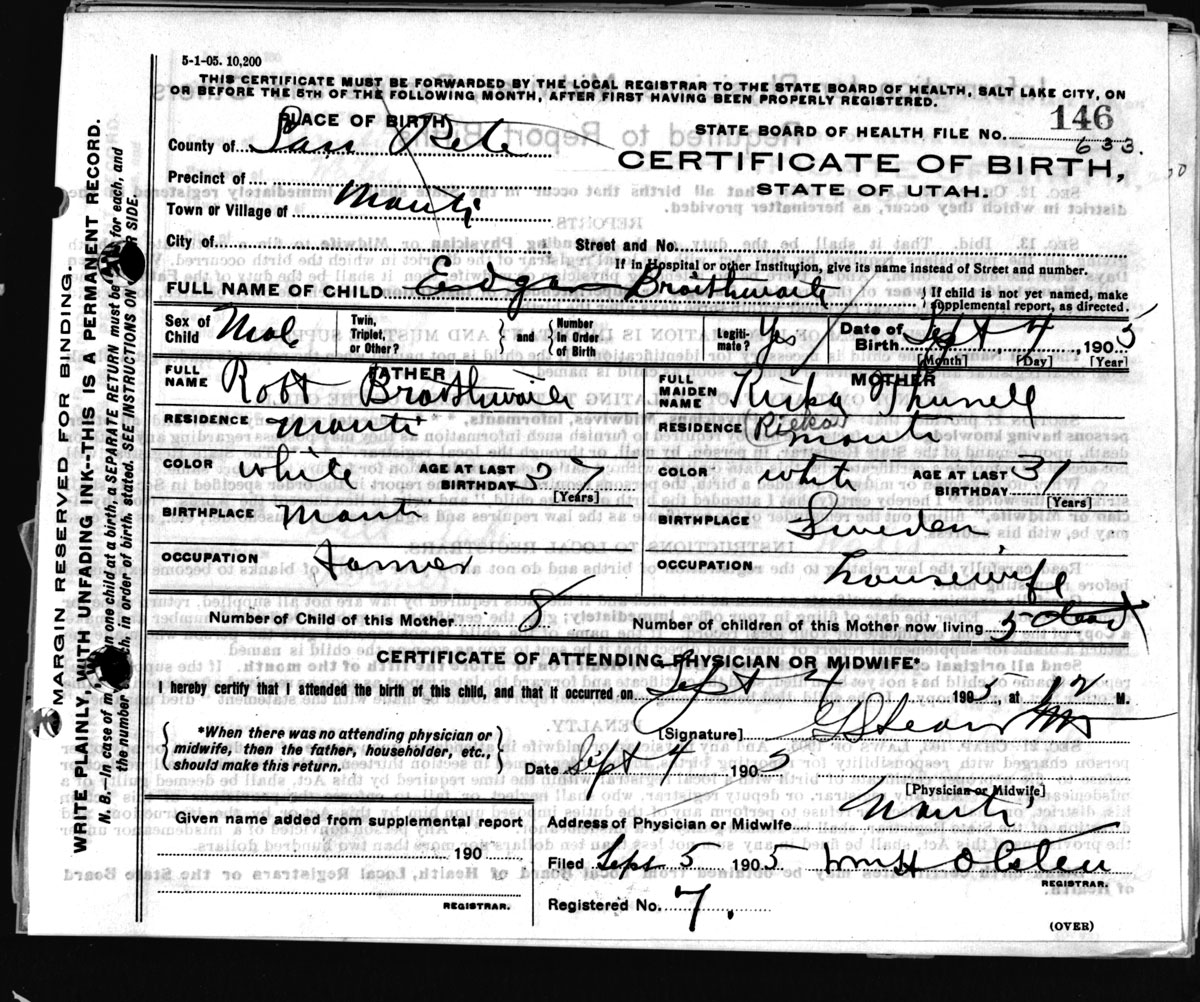 5-1-05. 10,200
THIS CERTIFICATE MUST BE FORWARDED BY THE LOCAL REGISTRAR TO THE STATE BOARD OF HEALTH, SALT LAKE CITY, ON
OR BEFORE THE 5TH OF THE FOLLOWING MONTH, AFTER FIRST HAVING BEEN PROPERLY REGISTERED.
PLACE OF BIRTH
STATE BOARD OF HEALTH FILE No. 146
633.
County of San Pete
CERTIFICATE OF BIRTH,
STATE OF UTAH.
Precinct of
Town or Village of Manti
City of Street and No.
If in Hospital or other Institution, give its name instead of Street and number.
FULL NAME OF CHILD Edgar Braithwaite { If child is not yet named, make supplemental report, as directed.
Sex of Child Male Twin, Triplet, or Other? { and } Number in Order of Birth Legiti-mate? Yes Date of Birth Sept 4 1905
[Month] [Day] [Year]
FATHER
FULL NAME Robt Braithwaite
RESIDENCE Manti
COLOR white AGE AT LAST BIRTHDAY 37 [Years]
BIRTHPLACE Manti
OCCUPATION Farmer
MOTHER
FULL MAIDEN NAME Thunell
(Ricka)
RESIDENCE Manti
COLOR white AGE AT LAST BIRTHDAY 31 [Years]
BIRTHPLACE Sweden
OCCUPATION housewife
Number of Child of this Mother 8 Number of children of this Mother now living 5 dead
CERTIFICATE OF ATTENDING PHYSICIAN OR MIDWIFE*
I hereby certify that I attended the birth of this child, and that it occurred on Sept 4 1905, at 12 M.
{ *When there was no attending physician or midwife, then the father, householder, etc., should make this return. }
[Signature]
Date Sept 4 1905
[Physician or Midwife]
Given name added from supplemental report
190
REGISTRAR.
Address of Physician or Midwife Manti
Filed Sept 5 1905 Wm H Olsen
REGISTRAR.
Registered No. 7.
(OVER)
MARGIN RESERVED FOR BINDING.
WRITE PLAINLY, WITH UNFADING INK--THIS IS A PERMANENT RECORD.
N. B.—In case of more than one child at a birth, a SEPARATE RETURN must be for each, and
the number ch. in order of birth, stated. SEE INSTRUCTIONS ON SIDE.